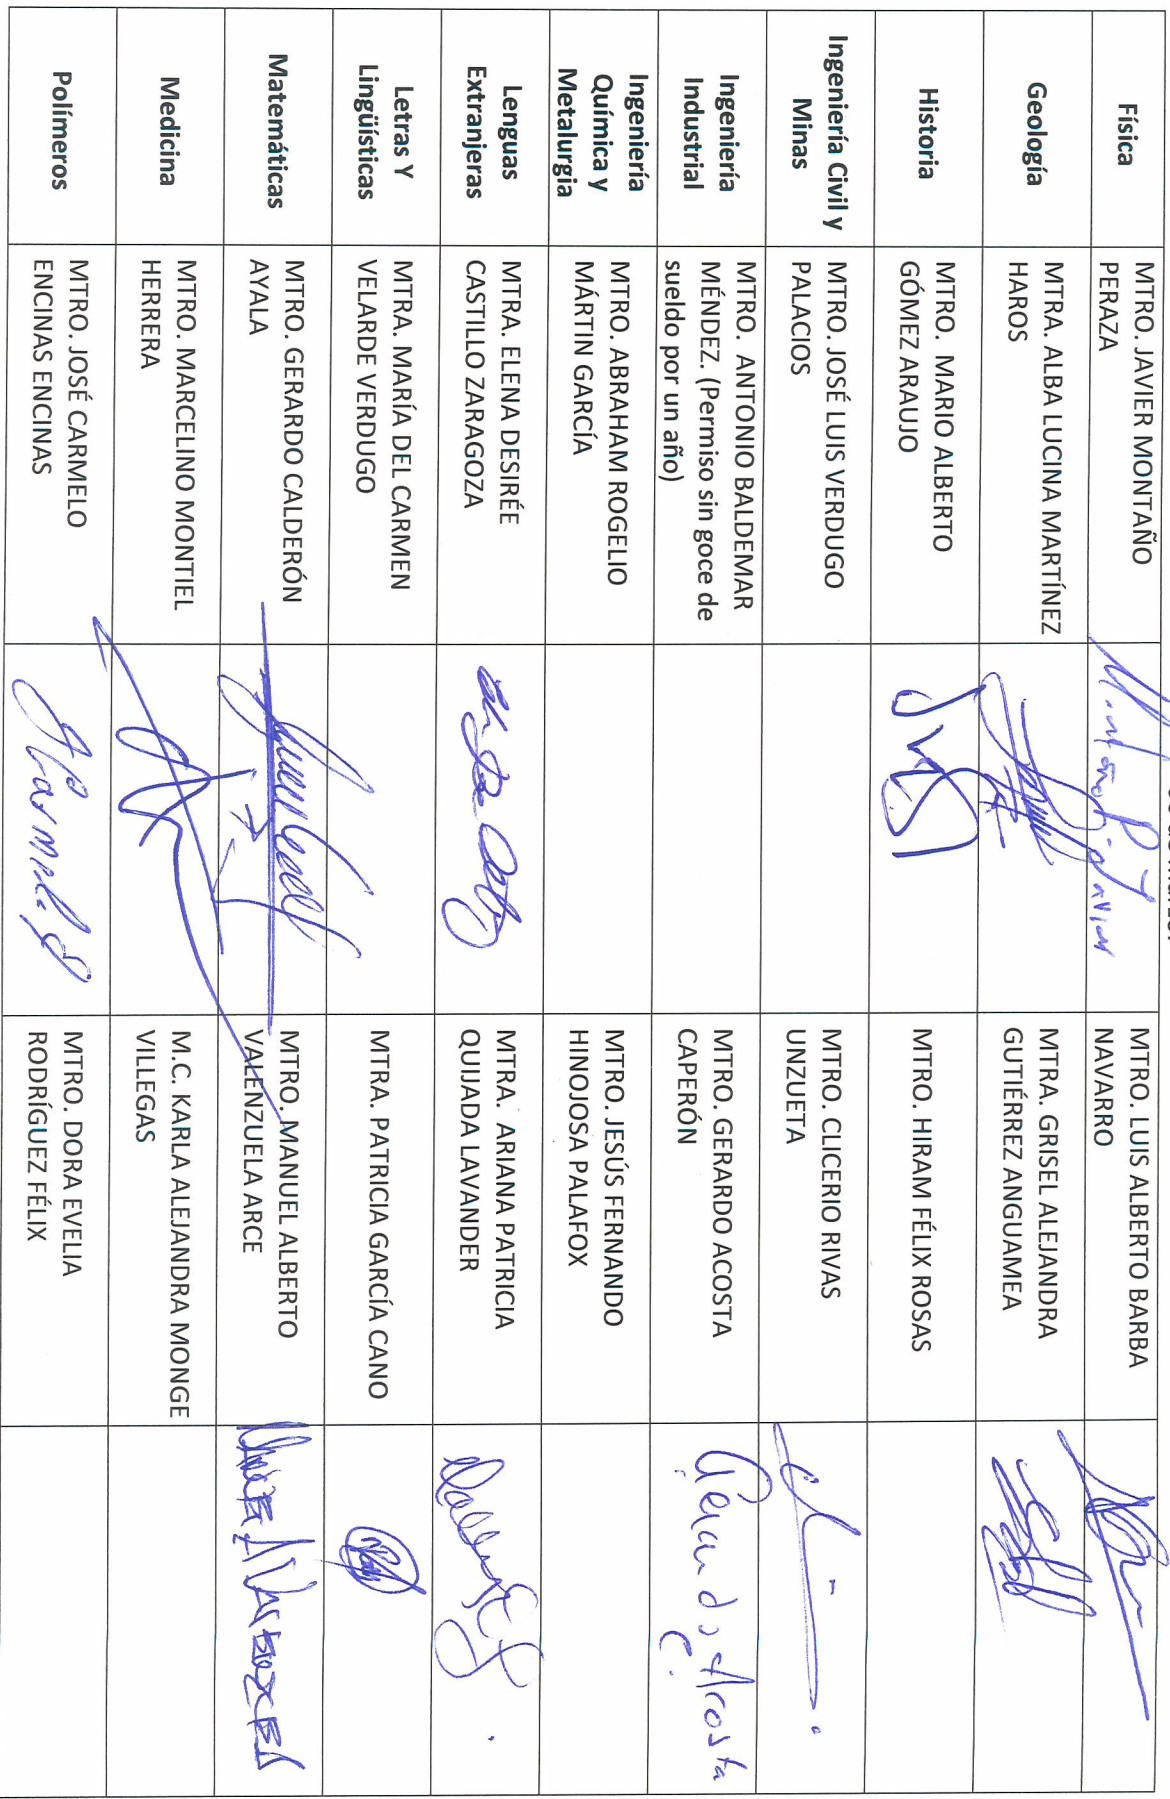 Física
MTRO. JAVIER MONTAÑO
PERAZA
Montaño P Javier
MTRO. LUIS ALBERTO BARBA
NAVARRO
Geología
MTRA. ALBA LUCINA MARTÍNEZ
HAROS
MTRA. GRISEL ALEJANDRA
GUTIÉRREZ ANGUAMEA
Historia
MTRO. MARIO ALBERTO
GÓMEZ ARAUJO
MTRO. HIRAM FÉLIX ROSAS
Ingeniería Civil y
Minas
MTRO. JOSÉ LUIS VERDUGO
PALACIOS
MTRO. CLICERIO RIVAS
UNZUETA
Ingeniería
Industrial
MTRO. ANTONIO BALDEMAR
MÉNDEZ. (Permiso sin goce de
sueldo por un año)
MTRO. GERARDO ACOSTA
CAPERÓN
Gerardo Acosta
C.
Ingeniería
Química y
Metalurgia
MTRO. ABRAHAM ROGELIO
MÁRTIN GARCÍA
MTRO. JESÚS FERNANDO
HINOJOSA PALAFOX
Lenguas
Extranjeras
MTRA. ELENA DESIRÉE
CASTILLO ZARAGOZA
MTRA. ARIANA PATRICIA
QUIJADA LAVANDER
Letras Y
Lingüísticas
MTRA. MARÍA DEL CARMEN
VELARDE VERDUGO
MTRA. PATRICIA GARCÍA CANO
Matemáticas
MTRO. GERARDO CALDERÓN
AYALA
MTRO. MANUEL ALBERTO
VALENZUELA ARCE
Medicina
MTRO. MARCELINO MONTIEL
HERRERA
M.C. KARLA ALEJANDRA MONGE
VILLEGAS
Polímeros
MTRO. JOSÉ CARMELO
ENCINAS ENCINAS
MTRO. DORA EVELIA
RODRÍGUEZ FÉLIX